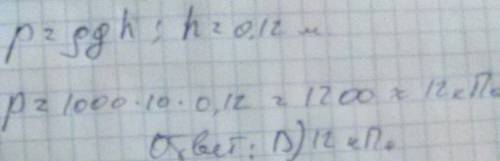 p = ρgh ; h = 0,12 м
p = 1000·10·0,12 = 1200 = 12 кПа
Ответ: D) 12 кПа